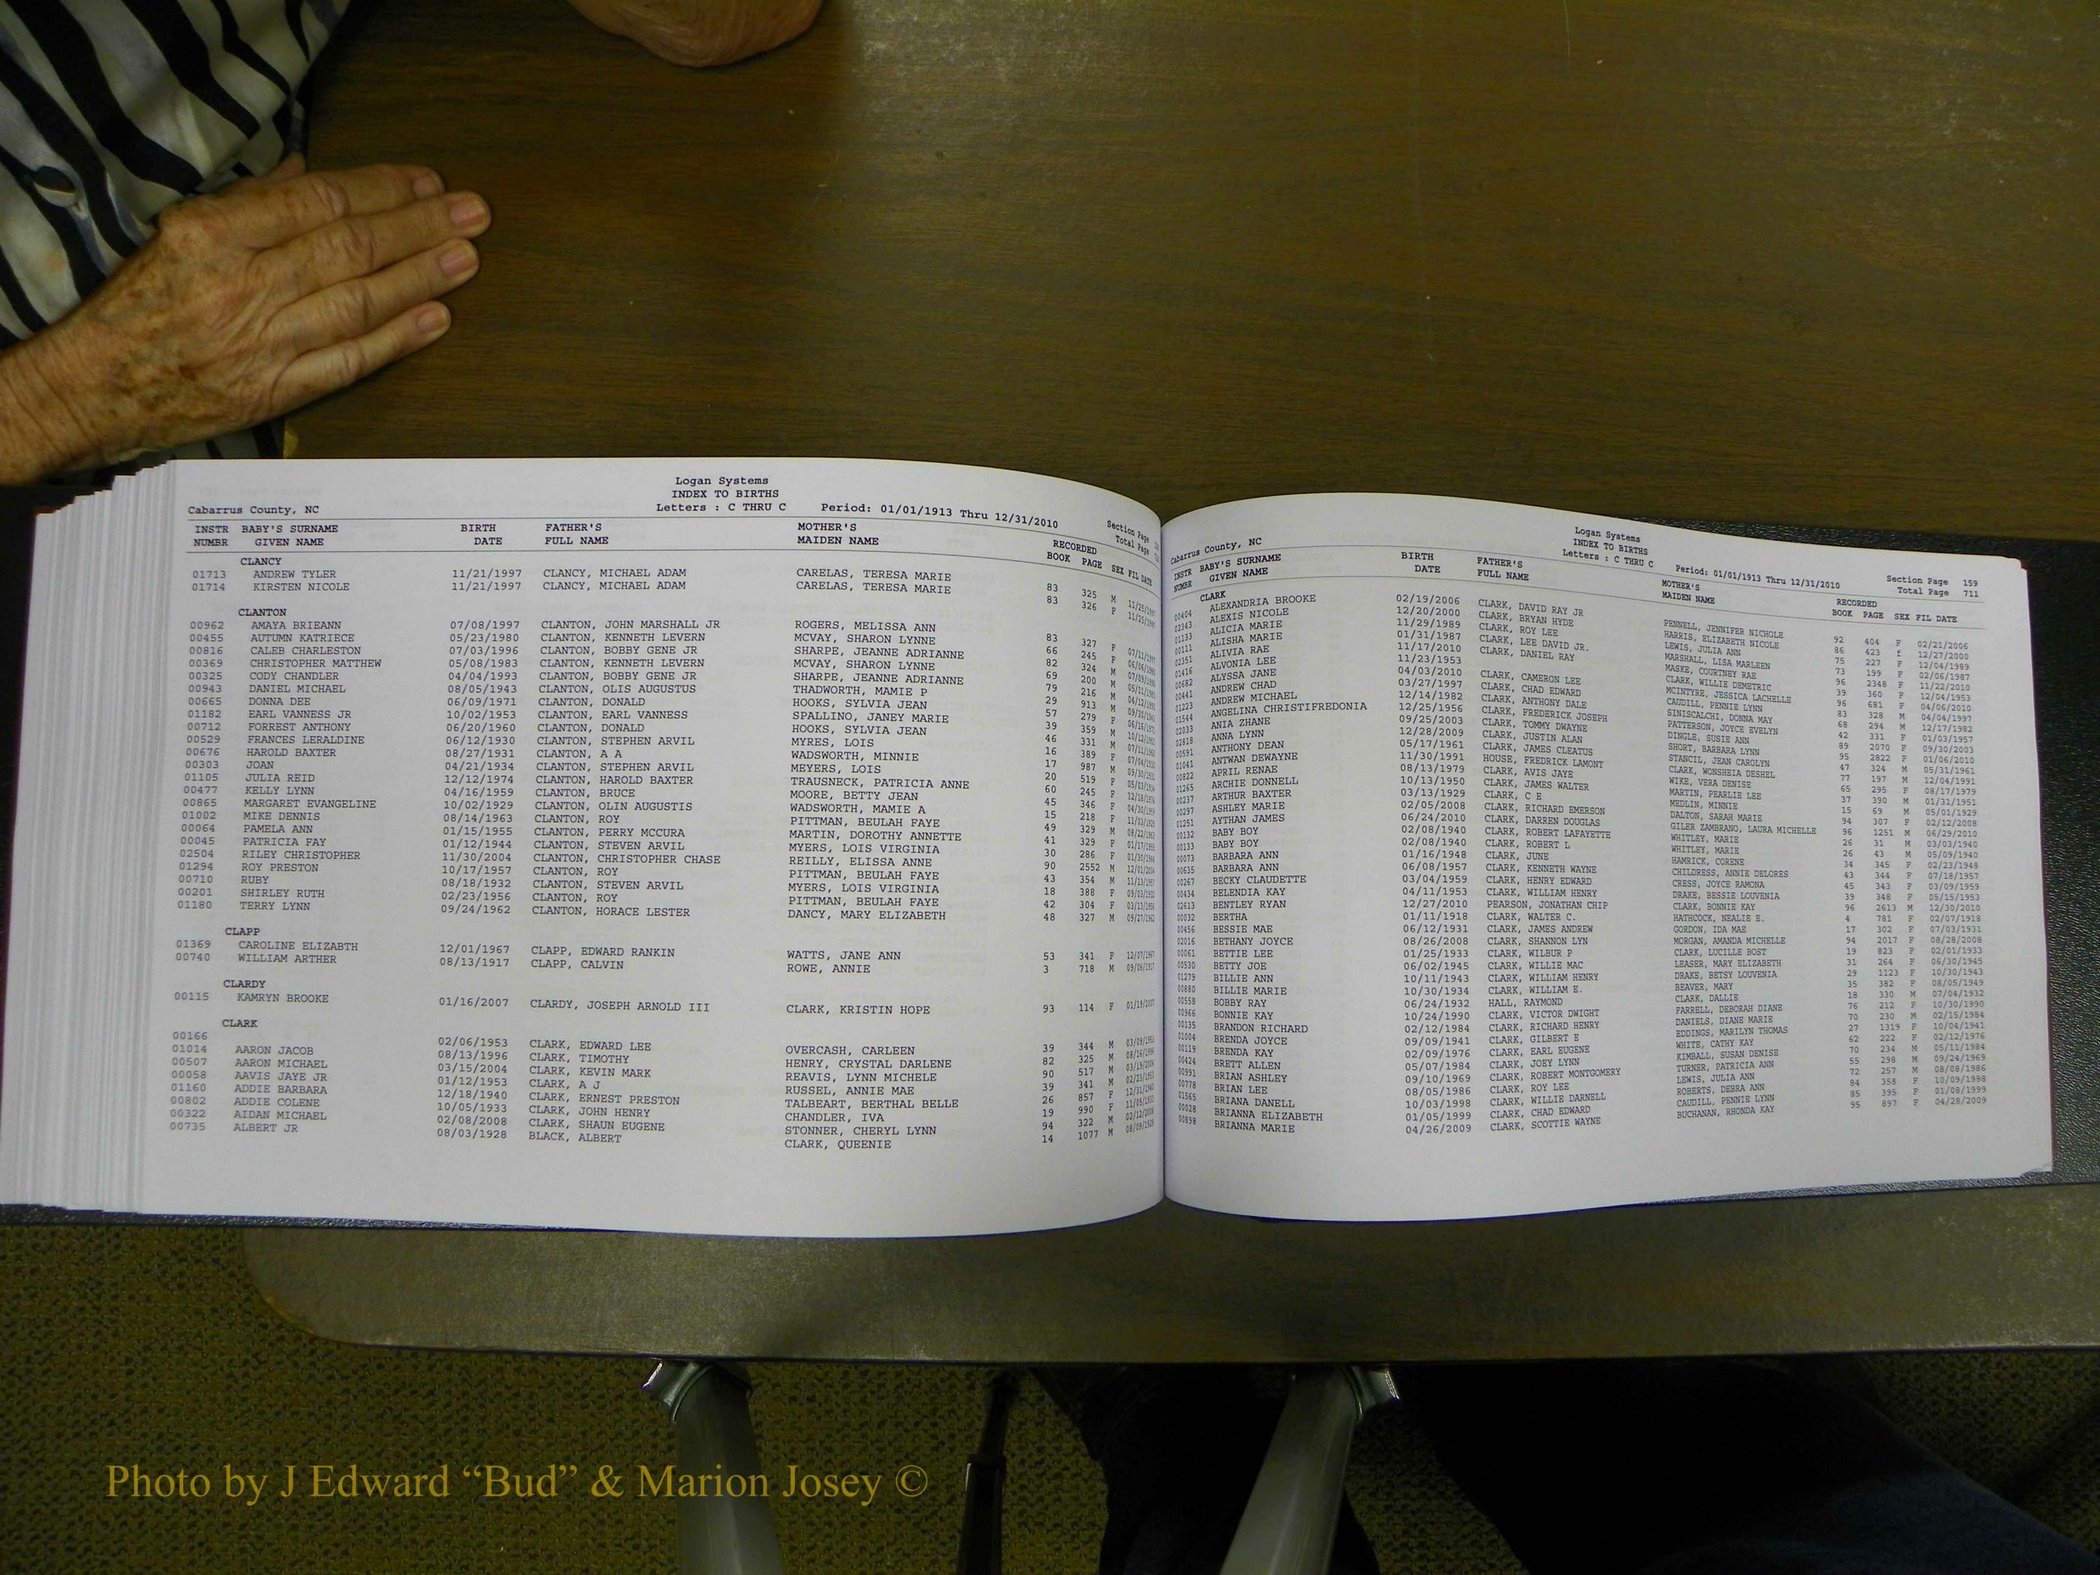 Logan Systems
INDEX TO BIRTHS
Cabarrus County, NC Letters : C THRU C Period: 01/01/1913 Thru 12/31/2010 Section Page
Total Page
INSTR BABY'S SURNAME BIRTH FATHER'S MOTHER'S RECORDED
NUMBR GIVEN NAME DATE FULL NAME MAIDEN NAME BOOK PAGE SEX FIL DATE
CLANCY
01713 ANDREW TYLER 11/21/1997 CLANCY, MICHAEL ADAM CARELAS, TERESA MARIE 83 325 M
01714 KIRSTEN NICOLE 11/21/1997 CLANCY, MICHAEL ADAM CARELAS, TERESA MARIE 83 326 F
CLANTON
00962 AMAYA BRIEANN 07/08/1997 CLANTON, JOHN MARSHALL JR ROGERS, MELISSA ANN 83 327 F
00455 AUTUMN KATRIECE 05/23/1980 CLANTON, KENNETH LEVERN MCVAY, SHARON LYNNE 66 245 F
00816 CALEB CHARLESTON 07/03/1996 CLANTON, BOBBY GENE JR SHARPE, JEANNE ADRIANNE 82 324 M
00369 CHRISTOPHER MATTHEW 05/08/1983 CLANTON, KENNETH LEVERN MCVAY, SHARON LYNNE 69 200 M
00325 CODY CHANDLER 04/04/1993 CLANTON, BOBBY GENE JR SHARPE, JEANNE ADRIANNE 79 216 M
00943 DANIEL MICHAEL 08/05/1943 CLANTON, OLIS AUGUSTUS THADWORTH, MAMIE P 29 913 M
00665 DONNA DEE 06/09/1971 CLANTON, DONALD HOOKS, SYLVIA JEAN 57 279 F
01182 EARL VANNESS JR 10/02/1953 CLANTON, EARL VANNESS SPALLINO, JANEY MARIE 39 359 M
00712 FORREST ANTHONY 06/20/1960 CLANTON, DONALD HOOKS, SYLVIA JEAN 46 331 M
00529 FRANCES LERALDINE 06/12/1930 CLANTON, STEPHEN ARVIL MYRES, LOIS 16 389 F
00676 HAROLD BAXTER 08/27/1931 CLANTON, A A WADSWORTH, MINNIE 17 987 M
00303 JOAN 04/21/1934 CLANTON, STEPHEN ARVIL MEYERS, LOIS 20 519 F
01105 JULIA REID 12/12/1974 CLANTON, HAROLD BAXTER TRAUSNECK, PATRICIA ANNE 60 245 F
00477 KELLY LYNN 04/16/1959 CLANTON, BRUCE MOORE, BETTY JEAN 45 346 F
00865 MARGARET EVANGELINE 10/02/1929 CLANTON, OLIN AUGUSTIS WADSWORTH, MAMIE A 15 218 F
01002 MIKE DENNIS 08/14/1963 CLANTON, ROY PITTMAN, BEULAH FAYE 49 329 M
00064 PAMELA ANN 01/15/1955 CLANTON, PERRY MCCURA MARTIN, DOROTHY ANNETTE 41 329 F
00045 PATRICIA FAY 01/12/1944 CLANTON, STEVEN ARVIL MYERS, LOIS VIRGINIA 30 286 F
02504 RILEY CHRISTOPHER 11/30/2004 CLANTON, CHRISTOPHER CHASE REILLY, ELISSA ANNE 90 2552 M 12/01/2004
01294 ROY PRESTON 10/17/1957 CLANTON, ROY PITTMAN, BEULAH FAYE 43 354 M
00710 RUBY 08/18/1932 CLANTON, STEVEN ARVIL MYERS, LOIS VIRGINIA 18 388 F
00201 SHIRLEY RUTH 02/23/1956 CLANTON, ROY PITTMAN, BEULAH FAYE 42 304 F
01180 TERRY LYNN 09/24/1962 CLANTON, HORACE LESTER DANCY, MARY ELIZABETH 48 327 M 09/27/1962
CLAPP
01369 CAROLINE ELIZABTH 12/01/1967 CLAPP, EDWARD RANKIN WATTS, JANE ANN 53 341 F 12/07/1967
00740 WILLIAM ARTHER 08/13/1917 CLAPP, CALVIN ROWE, ANNIE 3 718 M 09/06/1917
CLARDY
00115 KAMRYN BROOKE 01/16/2007 CLARDY, JOSEPH ARNOLD III CLARK, KRISTIN HOPE 93 114 F 01/19/2007
CLARK
00166 02/06/1953 CLARK, EDWARD LEE OVERCASH, CARLEEN 39 344 M 03/09/1953
01014 AARON JACOB 08/13/1996 CLARK, TIMOTHY HENRY, CRYSTAL DARLENE 82 325 M 08/16/1996
00507 AARON MICHAEL 03/15/2004 CLARK, KEVIN MARK REAVIS, LYNN MICHELE 90 517 M 03/19/2004
00058 AAVIS JAYE JR 01/12/1953 CLARK, A J RUSSEL, ANNIE MAE 39 341 M
01160 ADDIE BARBARA 12/18/1940 CLARK, ERNEST PRESTON TALBEART, BERTHAL BELLE 26 857 F 12/31/1940
00802 ADDIE COLENE 10/05/1933 CLARK, JOHN HENRY CHANDLER, IVA 19 990 F 11/05/1933
00322 AIDAN MICHAEL 02/08/2008 CLARK, SHAUN EUGENE STONNER, CHERYL LYNN 94 322 M 02/12/2008
00735 ALBERT JR 08/03/1928 BLACK, ALBERT CLARK, QUEENIE 14 1077 M 08/09/1928
Logan Systems
INDEX TO BIRTHS
Cabarrus County, NC Letters : C THRU C Period: 01/01/1913 Thru 12/31/2010 Section Page 159
Total Page 711
INSTR BABY'S SURNAME BIRTH FATHER'S MOTHER'S RECORDED
NUMBR GIVEN NAME DATE FULL NAME MAIDEN NAME BOOK PAGE SEX FIL DATE
CLARK
00404 ALEXANDRIA BROOKE 02/19/2006 CLARK, DAVID RAY JR PENNELL, JENNIFER NICHOLE 92 404 F 02/21/2006
02343 ALEXIS NICOLE 12/20/2000 CLARK, BRYAN HYDE HARRIS, ELIZABETH NICOLE 86 423 f 12/27/2000
01133 ALICIA MARIE 11/29/1989 CLARK, ROY LEE LEWIS, JULIA ANN 75 227 F 12/04/1989
00111 ALISHA MARIE 01/31/1987 CLARK, LEE DAVID JR. MARSHALL, LISA MARLEEN 73 199 F 02/06/1987
02351 ALIVIA RAE 11/17/2010 CLARK, DANIEL RAY MASKE, COURTNEY RAE 96 2348 F 11/22/2010
01416 ALVONIA LEE 11/23/1953 CLARK, WILLIE DEMETRIC 39 360 F 12/04/1953
00682 ALYSSA JANE 04/03/2010 CLARK, CAMERON LEE MCINTYRE, JESSICA LACHELLE 96 681 F 04/06/2010
00441 ANDREW CHAD 03/27/1997 CLARK, CHAD EDWARD CAUDILL, PENNIE LYNN 83 328 M 04/04/1997
01223 ANDREW MICHAEL 12/14/1982 CLARK, ANTHONY DALE SINISCALCHI, DONNA MAY 68 294 M 12/17/1982
01544 ANGELINA CHRISTIFREDONIA 12/25/1956 CLARK, FREDERICK JOSEPH PATTERSON, JOYCE EVELYN 42 331 F 01/03/1957
02033 ANIA ZHANE 09/25/2003 CLARK, TOMMY DWAYNE DINGLE, SUSIE ANN 89 2070 F 09/30/2003
02818 ANNA LYNN 12/28/2009 CLARK, JUSTIN ALAN SHORT, BARBARA LYNN 95 2822 F 01/06/2010
00591 ANTHONY DEAN 05/17/1961 CLARK, JAMES CLEATUS STANCIL, JEAN CAROLYN 47 324 M 05/31/1961
01041 ANTWAN DEWAYNE 11/30/1991 HOUSE, FREDRICK LAMONT CLARK, WONSHEIA DESHEL 77 197 M 12/04/1991
00822 APRIL RENAE 08/13/1979 CLARK, AVIS JAYE WIKE, VERA DENISE 65 295 F 08/17/1979
01265 ARCHIE DONNELL 10/13/1950 CLARK, JAMES WALTER MARTIN, PEARLIE LEE 37 390 M 01/31/1951
00237 ARTHUR BAXTER 03/13/1929 CLARK, C E MEDLIN, MINNIE 15 69 M 05/01/1929
00297 ASHLEY MARIE 02/05/2008 CLARK, RICHARD EMERSON DALTON, SARAH MARIE 94 307 F 02/12/2008
01251 AYTHAN JAMES 06/24/2010 CLARK, DARREN DOUGLAS GILER ZAMBRANO, LAURA MICHELLE 96 1251 M 06/29/2010
00132 BABY BOY 02/08/1940 CLARK, ROBERT LAFAYETTE WHITLEY, MARIE 26 31 M 03/03/1940
00133 BABY BOY 02/08/1940 CLARK, ROBERT L WHITLEY, MARIE 26 43 M 05/09/1940
00073 BARBARA ANN 01/16/1948 CLARK, JUNE HAMRICK, CORENE 34 345 F 02/23/1948
00635 BARBARA ANN 06/08/1957 CLARK, KENNETH WAYNE CHILDRESS, ANNIE DELORES 43 344 F 07/18/1957
00267 BECKY CLAUDETTE 03/04/1959 CLARK, HENRY EDWARD CRESS, JOYCE RAMONA 45 343 F 03/09/1959
00434 BELENDIA KAY 04/11/1953 CLARK, WILLIAM HENRY DRAKE, BESSIE LOUVENIA 39 348 F 05/15/1953
02613 BENTLEY RYAN 12/27/2010 PEARSON, JONATHAN CHIP CLARK, BONNIE KAY 96 2613 M 12/30/2010
00032 BERTHA 01/11/1918 CLARK, WALTER C. HATHCOCK, NEALIE E. 4 781 F 02/07/1918
00456 BESSIE MAE 06/12/1931 CLARK, JAMES ANDREW GORDON, IDA MAE 17 302 F 07/03/1931
02016 BETHANY JOYCE 08/26/2008 CLARK, SHANNON LYN MORGAN, AMANDA MICHELLE 94 2017 F 08/28/2008
00061 BETTIE LEE 01/25/1933 CLARK, WILBUR P CLARK, LUCILLE BOST 19 823 F 02/01/1933
00530 BETTY JOE 06/02/1945 CLARK, WILLIE MAC LEASER, MARY ELIZABETH 31 264 F 06/30/1945
01279 BILLIE ANN 10/11/1943 CLARK, WILLIAM HENRY DRAKE, BETSY LOUVENIA 29 1123 F 10/30/1943
00880 BILLIE MARIE 10/30/1934 CLARK, WILLIAM E. BEAVER, MARY 35 382 F 08/05/1949
00558 BOBBY RAY 06/24/1932 HALL, RAYMOND CLARK, DALLIE 18 330 M 07/04/1932
00966 BONNIE KAY 10/24/1990 CLARK, VICTOR DWIGHT FARRELL, DEBORAH DIANE 76 212 F 10/30/1990
00135 BRANDON RICHARD 02/12/1984 CLARK, RICHARD HENRY DANIELS, DIANE MARIE 70 230 M 02/15/1984
01004 BRENDA JOYCE 09/09/1941 CLARK, GILBERT E EDDINGS, MARILYN THOMAS 27 1319 F 10/04/1941
00119 BRENDA KAY 02/09/1976 CLARK, EARL EUGENE WHITE, CATHY KAY 62 222 F 02/12/1976
00424 BRETT ALLEN 05/07/1984 CLARK, JOEY LYNN KIMBALL, SUSAN DENISE 70 234 M 05/11/1984
00991 BRIAN ASHLEY 09/10/1969 CLARK, ROBERT MONTGOMERY TURNER, PATRICIA ANN 55 298 M 09/24/1969
00778 BRIAN LEE 08/05/1986 CLARK, ROY LEE LEWIS, JULIA ANN 72 257 M 08/08/1986
01565 BRIANA DANELL 10/03/1998 CLARK, WILLIE DARNELL ROBERTS, DEBRA ANN 84 358 F 10/09/1998
00028 BRIANNA ELIZABETH 01/05/1999 CLARK, CHAD EDWARD CAUDILL, PENNIE LYNN 85 395 F 01/08/1999
00898 BRIANNA MARIE 04/26/2009 CLARK, SCOTTIE WAYNE BUCHANAN, RHONDA KAY 95 897 F 04/28/2009
Photo by J Edward “Bud” & Marion Josey ©